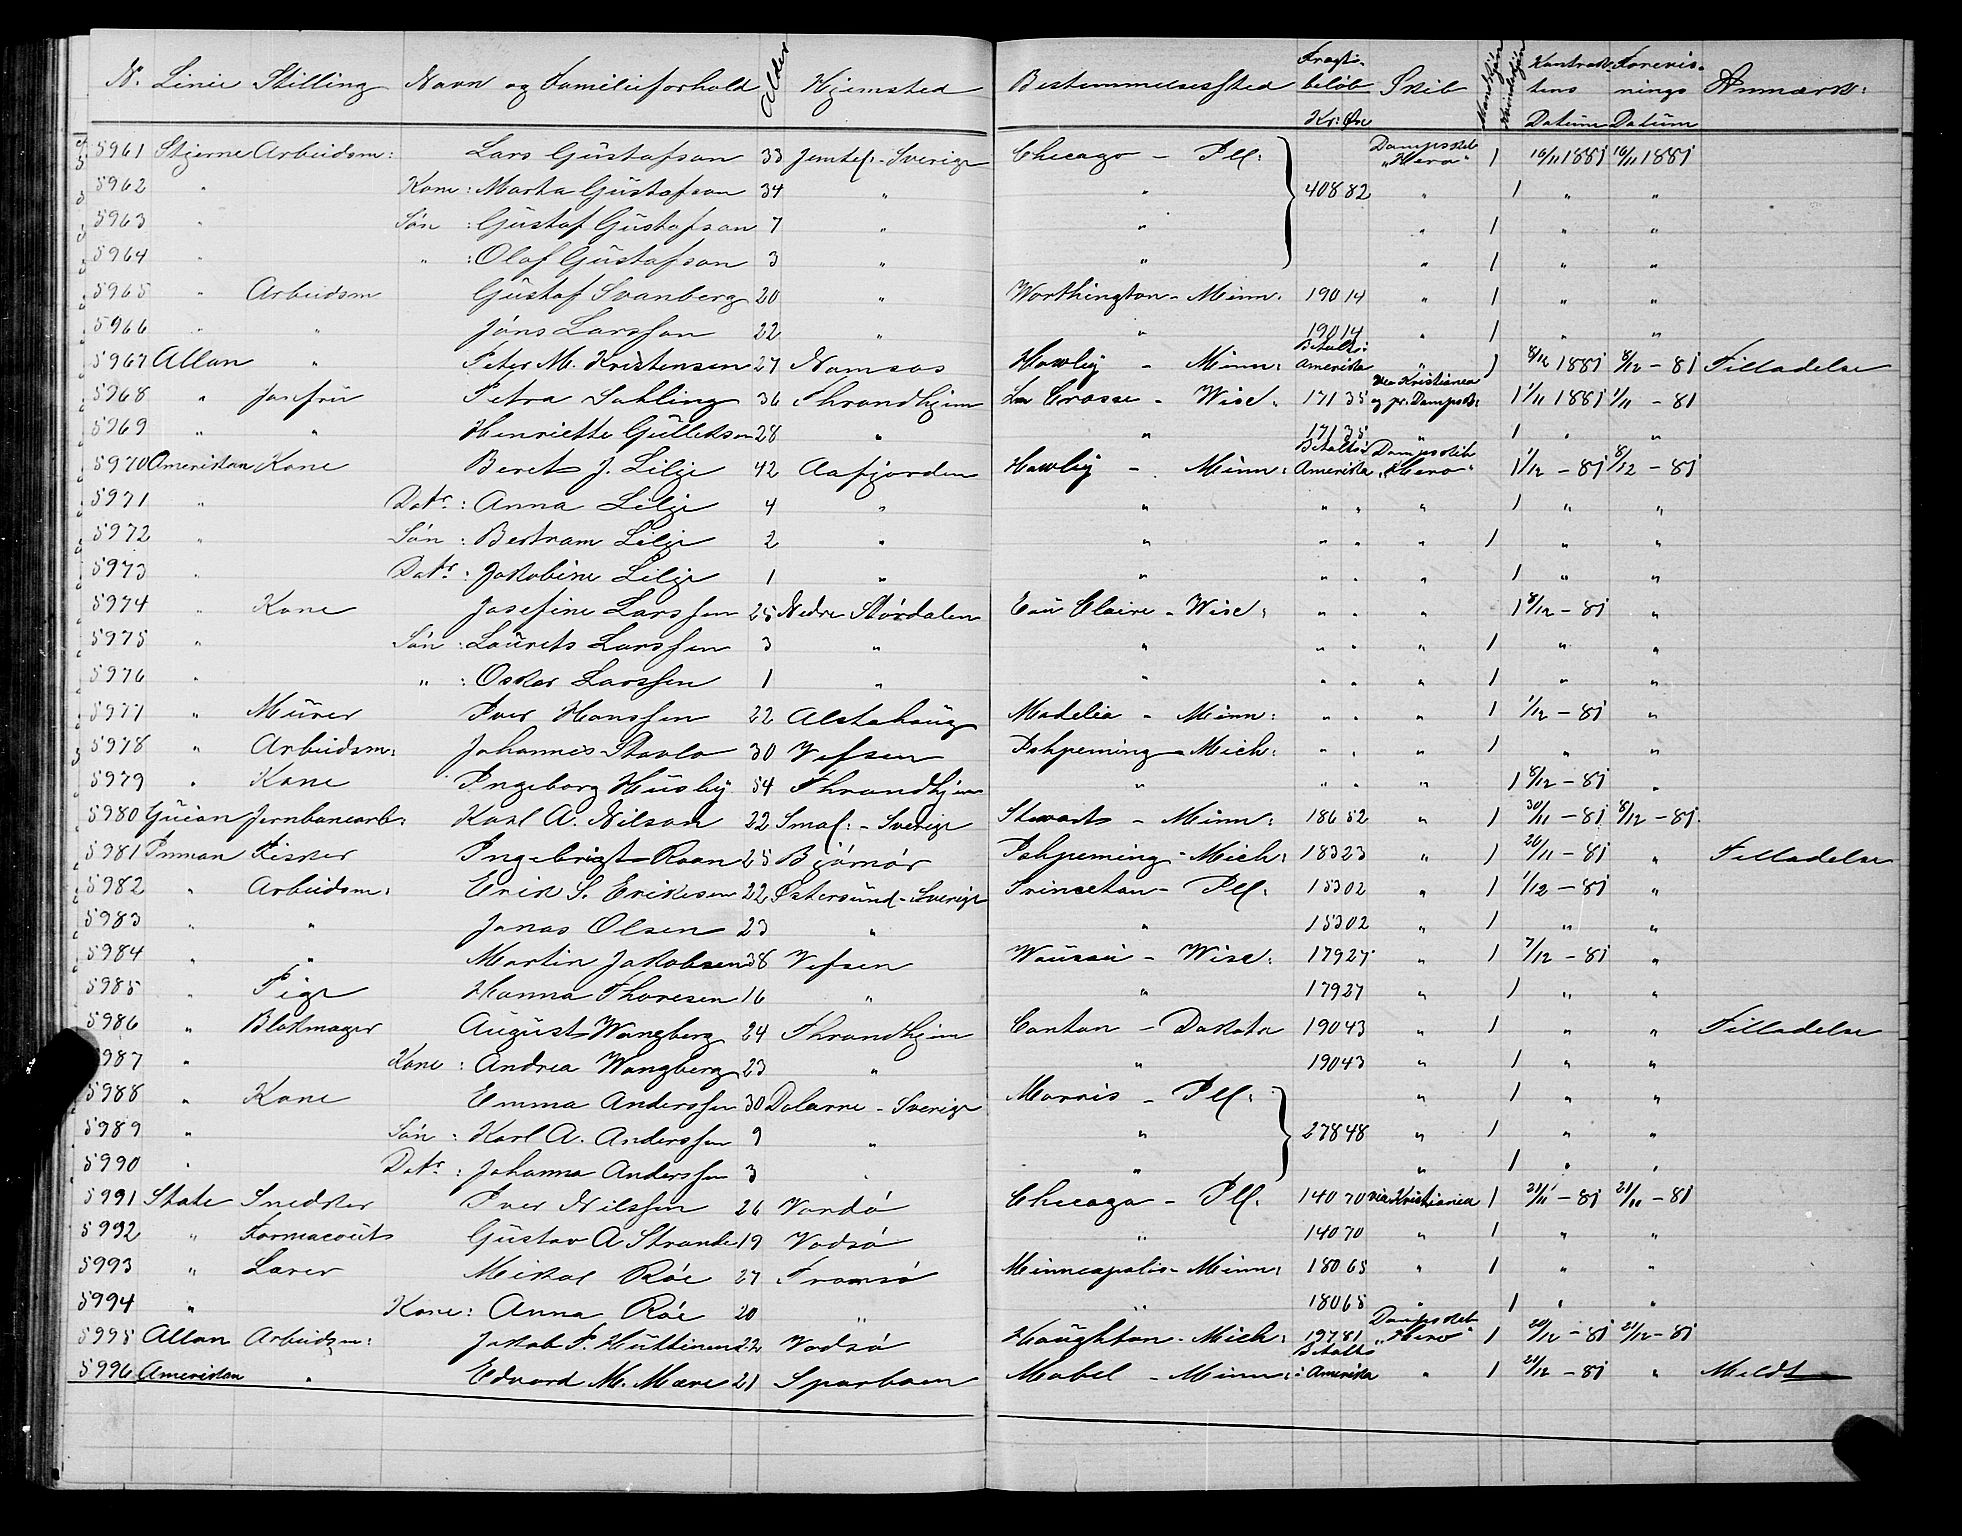 N. Linie Stilling Navn og Familieforhold Alder Hjemsted Bestemmelsessted Fragtbeløb Kr: Øre Skib Mandkjøn Kvindekjøn Kontraktens Datum Forevisnings Datum Anmærk:
5961 Stjerne Arbeidsm: Lars Gustafson 33 Jemtel: - Sverige Chicago - Ill: Dampskib "Hero" 1 16/11 1881 16/11 1881
5962 " Kone: Marta Gustafson 34 " " 408 82 " 1 " "
5963 " Søn: Gustaf Gustafson 7 " " " 1 " "
5964 " " : Olaf Gustafson 3 " " " 1 " "
5965 " Arbeidsm Gustaf Svanberg 20 " Worthington - Minn: 190 14 " 1 " "
5966 " " Jøns Larssøn 22 " " 190 14 " 1 " "
5967 Allan " Peter M. Kristensen 27 Namsos Hawley - Minn: Betalt i Amerika " 1 8/12 1881 8/12 - 81 Filladelfia
5968 " Jomfru Petra Sahling 36 Throndhjem La Crosse - Wisc. 171 35 via Kristiania og pr. Dampsk: 1 1/11 1881 1/11 - 81
5969 " " Henriette Gulliksen 28 " " 171 35 " 1 " "
5970 Amerikan Kone Beret J. Lilje 42 Aafjorden Hawley - Minn: Betalt i Amerika Dampskib "Hero" 1 1/12 - 81 8/12 - 81
5971 " Datr: Anna Lilje 4 " " " " " 1 " "
5972 " Søn: Bertram Lilje 2 " " " " " 1 " "
5973 " Datr: Jakobine Lilje 1 " " " " " 1 " "
5974 " Kone Josefine Larssen 25 Nedre Stördalen Eau Claire - Wisc: " " " 1 8/12 - 81 "
5975 " Søn: Laurets Larssen 3 " " " " " 1 " "
5976 " " : Oskar Larssen 1 " " " " " 1 " "
5977 " Murer Iver Hanssen 22 Alstahaug Madelia - Minn: " " " 1 1/12 - 81 "
5978 " Arbeidsm: Johannes Stavlo 30 Vefsen Ishpeming - Mich: " " " 1 " "
5979 " Kone Ingeborg Husby 54 Throndhjem " " " " 1 8/12 - 81 "
5980 Guion Jernbanearb: Karl A. Nilson 22 Smal: - Sverige Stewarts - Minn: 186 52 " 1 30/11 - 81 8/12 - 81
5981 Inman Fisker Ingebrigt Roan 25 Bjørnør Ishpeming - Mich: 183 23 " 1 26/11 - 81 " Filladelfia
5982 " Arbeidsm: Erik S. Eriksen 22 Østersund - Sverige Princeton - Ill: 153 02 " 1 1/12 - 81 "
5983 " " Jonas Olsen 23 " " 153 02 " 1 " "
5984 " " Martin Jakobsen 38 Vefsen Waussau - Wisc: 179 27 " 1 7/12 - 81 "
5985 " Pige Hanna Thoresen 16 " " 179 27 " 1 " "
5986 " Blokmager August Wangberg 24 Throndhjem Canton - Dakota 190 43 " 1 " " Filladelfia
5987 " Kone: Andrea Wangberg 23 " " 190 43 " 1 " "
5988 " Kone Emma Anderssen 30 Dalarne - Sverige Morris - Ill: " 1 " "
5989 " Søn: Karl A. Anderssen 9 " " 278 48 " 1 " "
5990 " Datr: Johanna Anderssen 3 " " " 1 " "
5991 State Snedker Iver Nilssen 26 Vardø Chicago - Ill. 140 70 via Kristiania 1 21/11 - 81 21/11 - 81
5992 " Farmaceut Gustav A Strande 19 Vadsø " 140 70 " 1 " "
5993 " Lærer Mikal Röe 27 Tromsø Minneapolis - Minn: 180 65 " 1 " "
5994 " Kone: Anna Röe 20 " " 180 65 " 1 " "
5995 Allan Arbeidsm: Jakob P. Huttinen 22 Vadsø Houghton - Mich: 197 81 Dampskib "Hero" 1 20/12 - 81 21/12 - 81
5996 Amerikan " Edvard M. Mære 21 Sparboen Mabel - Minn: Betalt i Amerika " 1 21/12 - 81 " Meldt